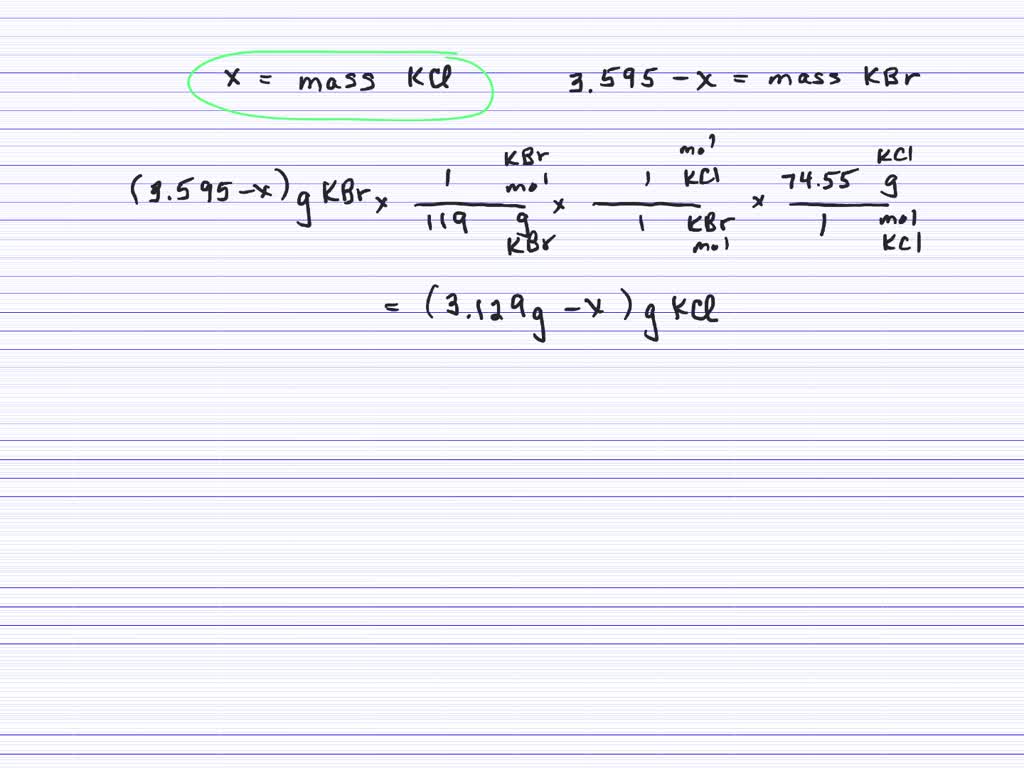 x = mass KCl 3.595 - x = mass KBr
(3.595 - x) g KBr x 1 mol KBr / 119 g KBr x 1 mol KCl / 1 mol KBr x 74.55 g KCl / 1 mol KCl
= (3.129g - x) g KCl